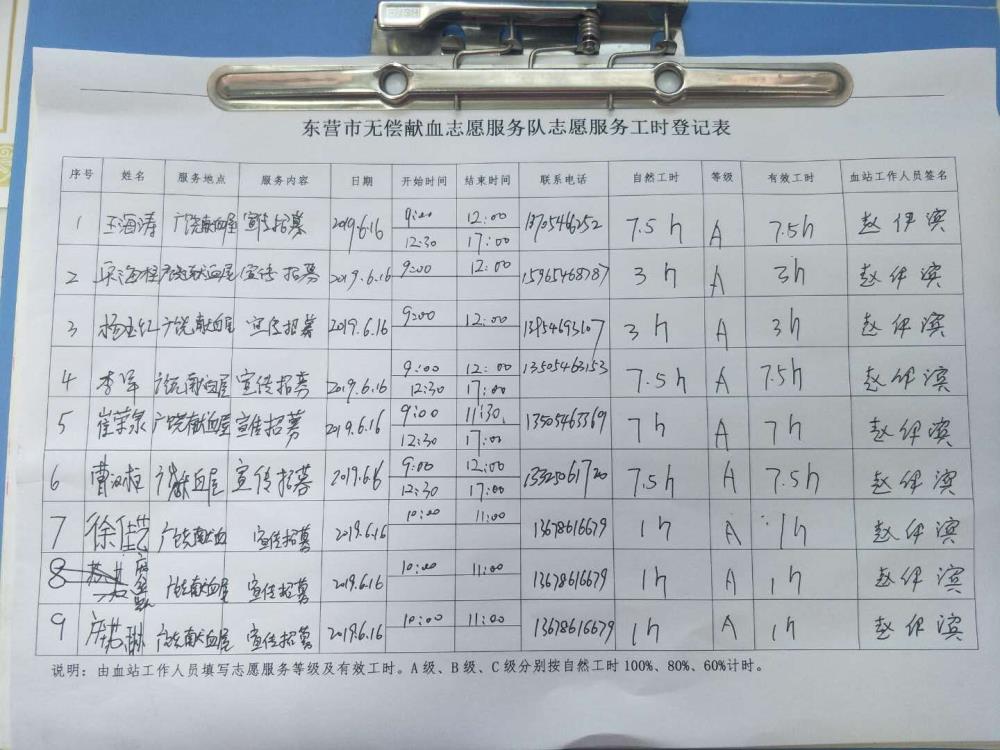 东营市无偿献血志愿服务队志愿服务工时登记表
序号 姓名 服务地点 服务内容 日期 开始时间 结束时间 联系电话 自然工时 等级 有效工时 血站工作人员签名
1 王海涛 广饶献血屋 宣传招募 2019.6.16 9:00 12:00 13705466252 7.5h A 7.5h 赵伊滨
12:30 17:00
2 广饶献血屋 宣传招募 2019.6.16 9:00 12:00 15965468787 3h A 3h 赵伊滨
3 杨玉红 广饶献血屋 宣传招募 2019.6.16 9:00 12:00 13954693107 3h A 3h 赵伊滨
4 李军 广饶献血屋 宣传招募 2019.6.16 9:00 12:00 13505463153 7.5h A 7.5h 赵伊滨
12:30 17:00
5 崔荣泉 广饶献血屋 宣传招募 2019.6.16 9:00 11:30 13505463369 7h A 7h 赵伊滨
12:30 17:00
6 广饶献血屋 宣传招募 2019.6.16 9:00 12:00 13325061720 7.5h A 7.5h 赵伊滨
12:30 17:00
7 徐佳艺 广饶献血 宣传招募 2019.6.16 10:00 11:00 13678616679 1h A 1h 赵伊滨
8 广饶献血屋 宣传招募 2019.6.16 10:00 11:00 13678616679 1h A 1h 赵伊滨
9 广饶献血屋 宣传招募 2019.6.16 10:00 11:00 13678616679 1h A 1h 赵伊滨
说明：由血站工作人员填写志愿服务等级及有效工时。A级、B级、C级分别按自然工时100%、80%、60%计时。